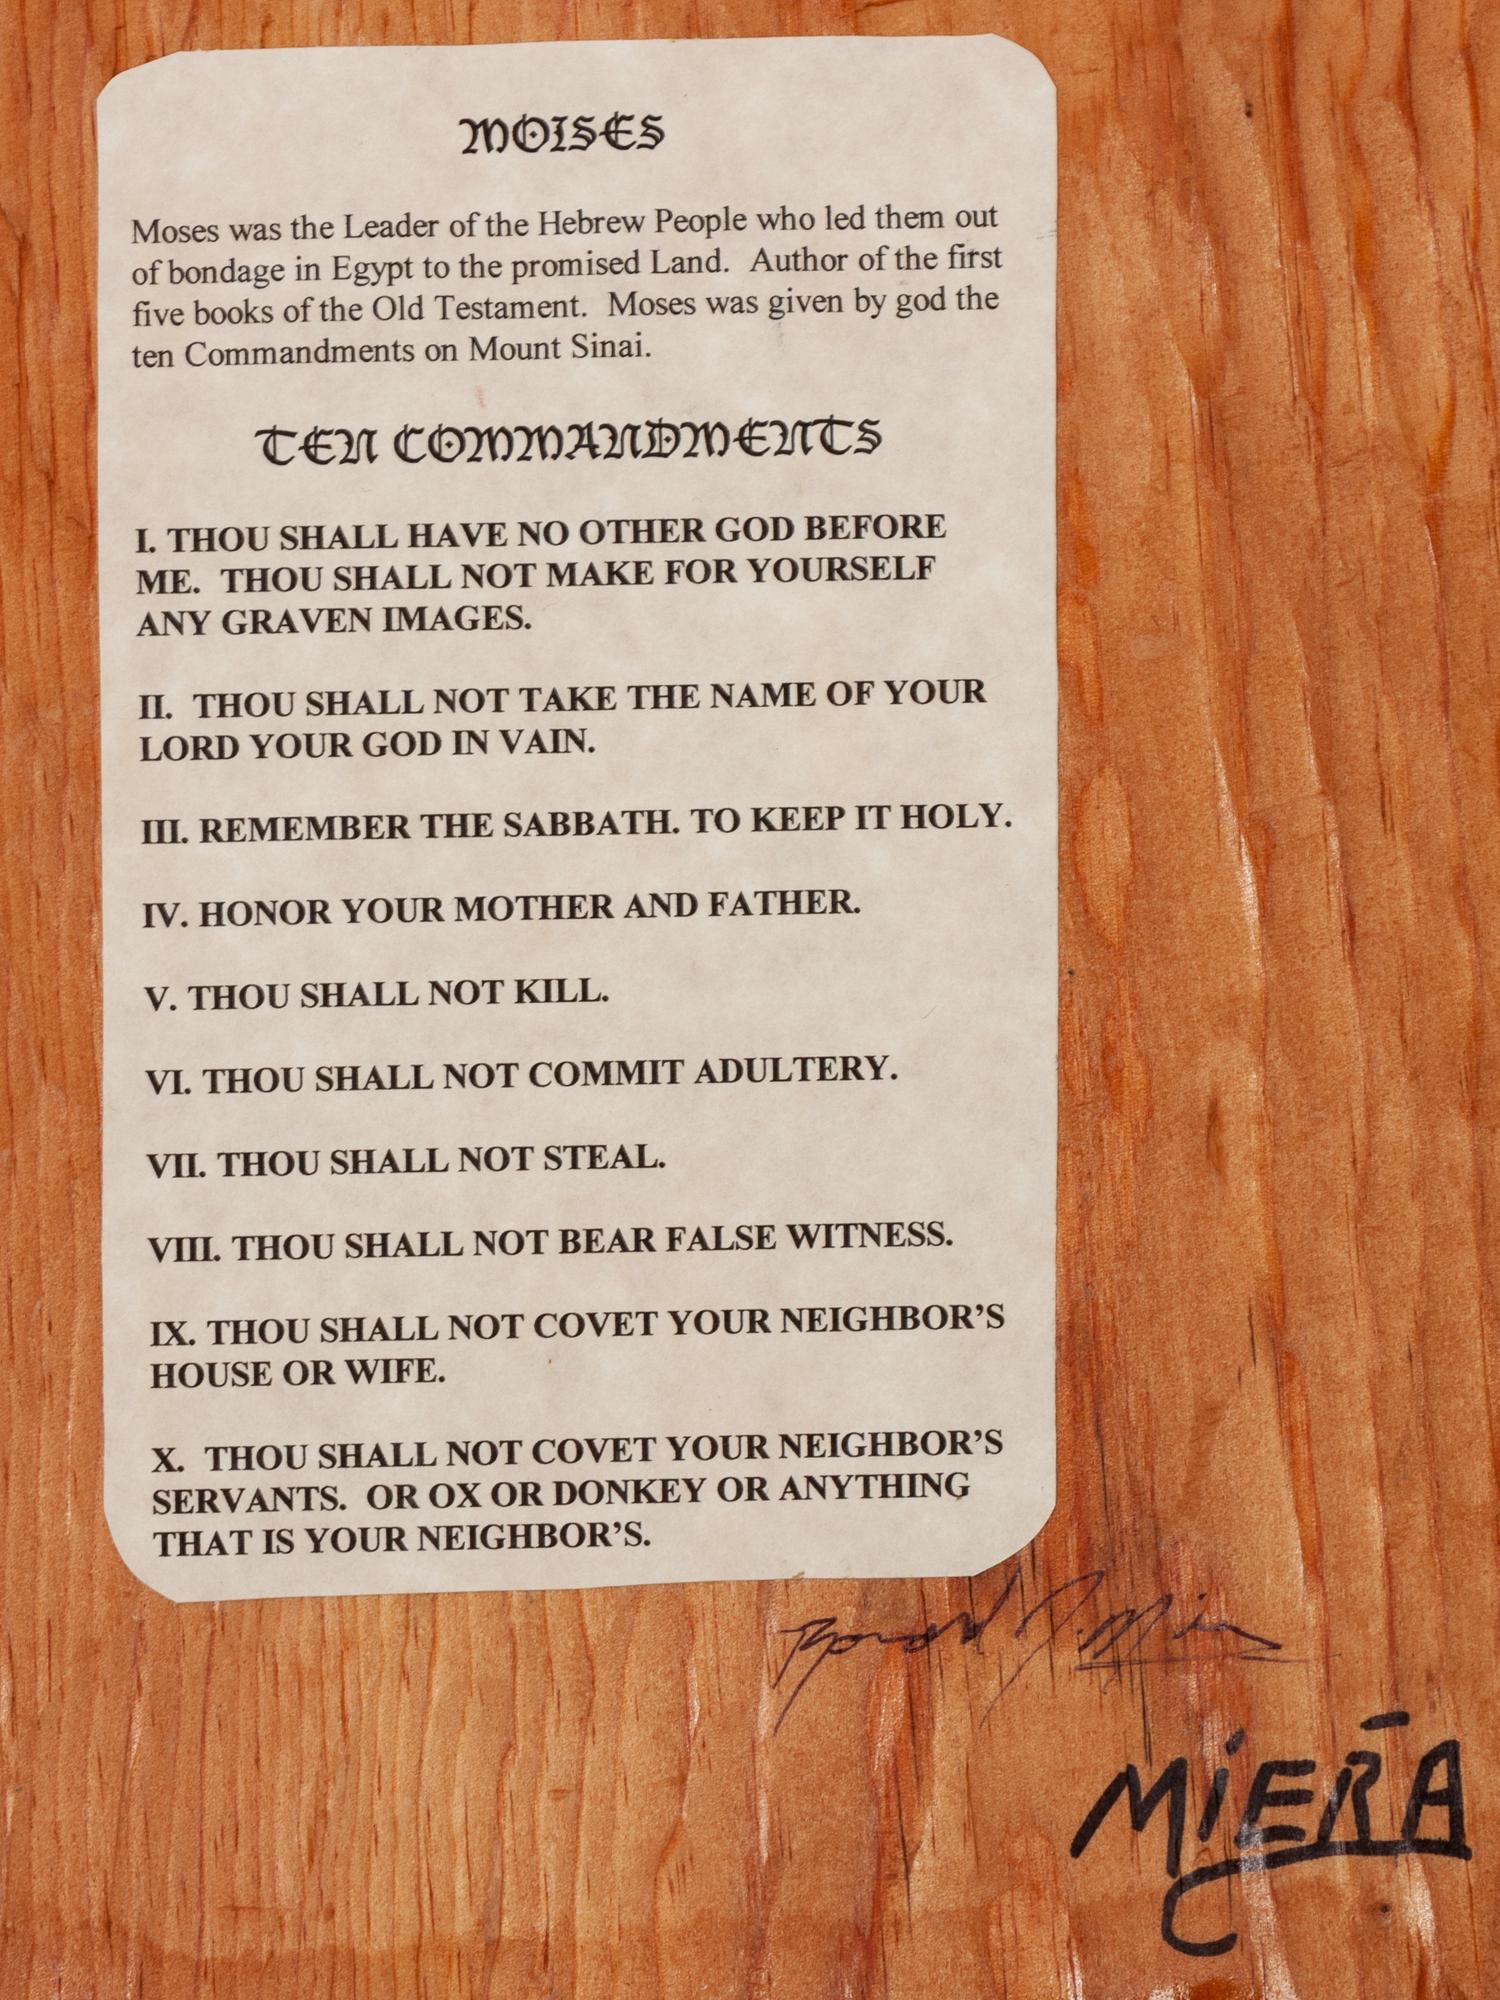 MOISES
Moses was the Leader of the Hebrew People who led them out
of bondage in Egypt to the promised Land.  Author of the first
five books of the Old Testament.  Moses was given by god the
ten Commandments on Mount Sinai.
TEN COMMANDMENTS
I. THOU SHALL HAVE NO OTHER GOD BEFORE
ME.  THOU SHALL NOT MAKE FOR YOURSELF
ANY GRAVEN IMAGES.
II.  THOU SHALL NOT TAKE THE NAME OF YOUR
LORD YOUR GOD IN VAIN.
III. REMEMBER THE SABBATH. TO KEEP IT HOLY.
IV. HONOR YOUR MOTHER AND FATHER.
V. THOU SHALL NOT KILL.
VI. THOU SHALL NOT COMMIT ADULTERY.
VII. THOU SHALL NOT STEAL.
VIII. THOU SHALL NOT BEAR FALSE WITNESS.
IX. THOU SHALL NOT COVET YOUR NEIGHBOR’S
HOUSE OR WIFE.
X.  THOU SHALL NOT COVET YOUR NEIGHBOR’S
SERVANTS.  OR OX OR DONKEY OR ANYTHING
THAT IS YOUR NEIGHBOR’S.
MiERA